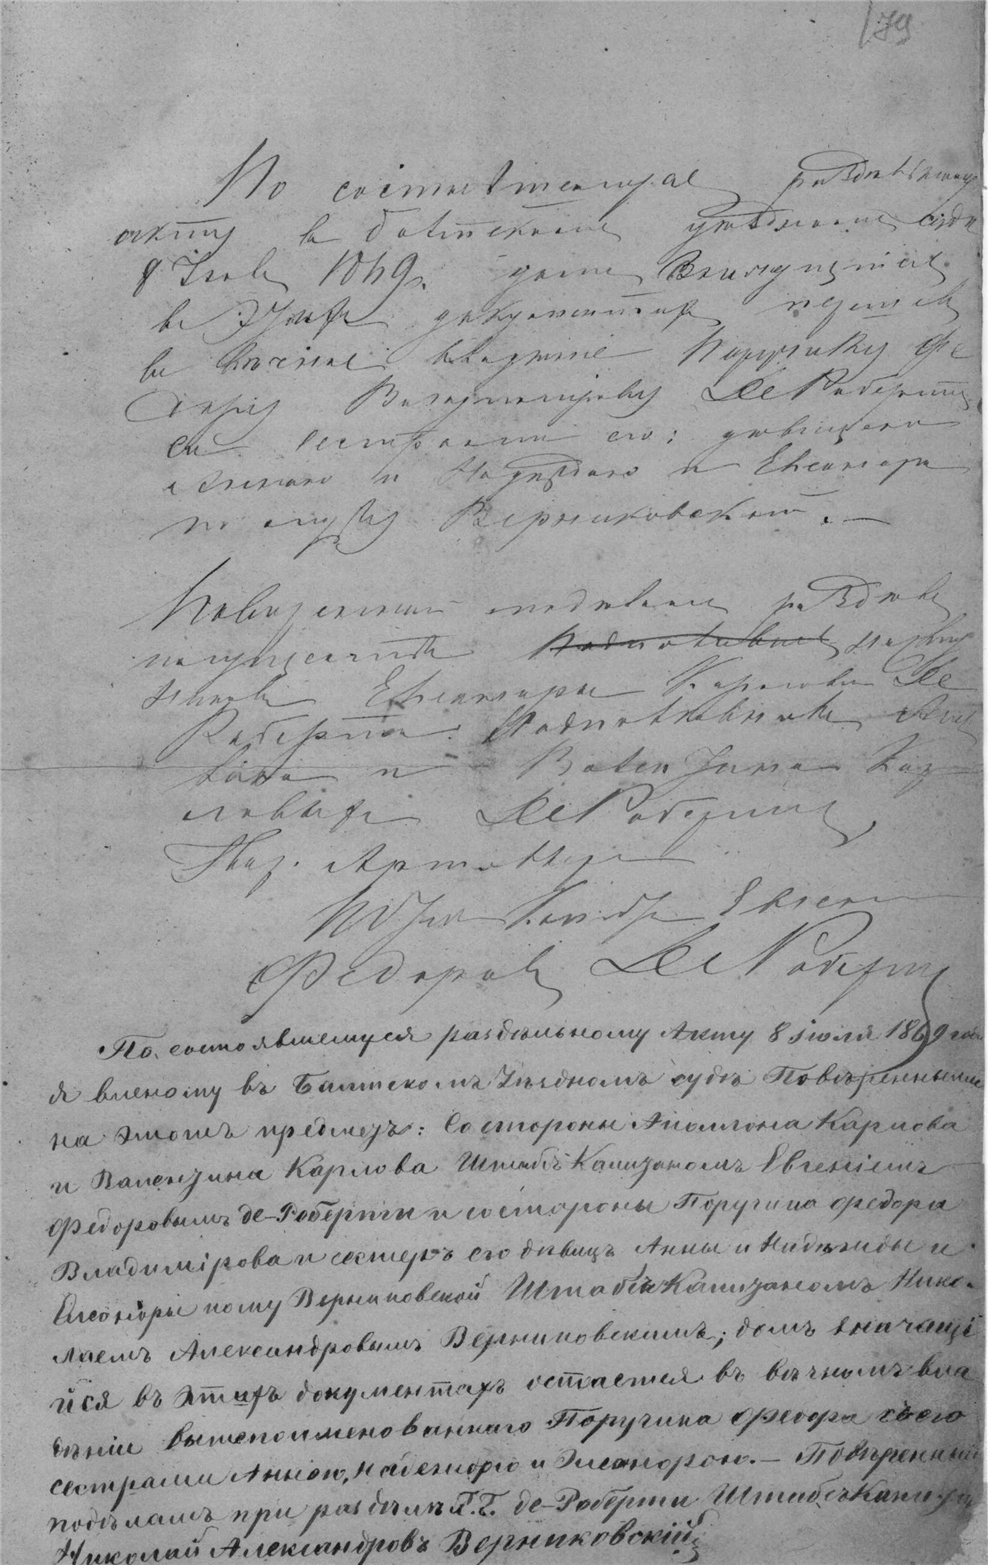 179
По состоявшемуся раздѣльному
акту въ Балтскомъ уѣздномъ судѣ
8 Іюля 1869 г. домъ значущійся
въ этихъ документахъ перешелъ
въ вѣчное владѣніе Поручику Фе
дору Владимірову Де Роберти
съ сестрами его: дѣвицами
Анною и Надеждою и Елеонорою
по мужу Верниковской. —
Повѣренный по дѣламъ раздѣла
имущества Подполковн
Елеоноры Карловны Де
Роберти. Подполковника Апол
лона и Валентина Кар
ловыхъ Де Роберти,
Гвар. Артиллеріи
Штабсъ Капитанъ Евгеній
Федоровъ Де Роберти
По состоявшемуся раздѣльному Акту 8 іюля 1869 года
явленому въ Балтскомъ Уѣздномъ судѣ Повѣренными
на этотъ предметъ: Со стороны Аполлона Карлова
и Валентина Карлова Штабсъ Капитаномъ Евгеніемъ
Федоровымъ де-Роберти и со стороны Поручика Федора
Владимірова и сестеръ его дѣвицъ Анны и Надежды и
Елеоноры по мужу Верниковской Штабсъ Капитаномъ Нико-
лаемъ Александровымъ Верниковскимъ; домъ значащі
йся въ этихъ документахъ остается въ вѣчномъ вла
дѣніи вышепоименованнаго Поручика Федора съ его
сестрами Анною, Надеждою и Элеонорою. — Повѣренный
по дѣламъ при раздѣлѣ Г.Г. де-Роберти Штабсъ Капитанъ
Николай Александровъ Верниковскій